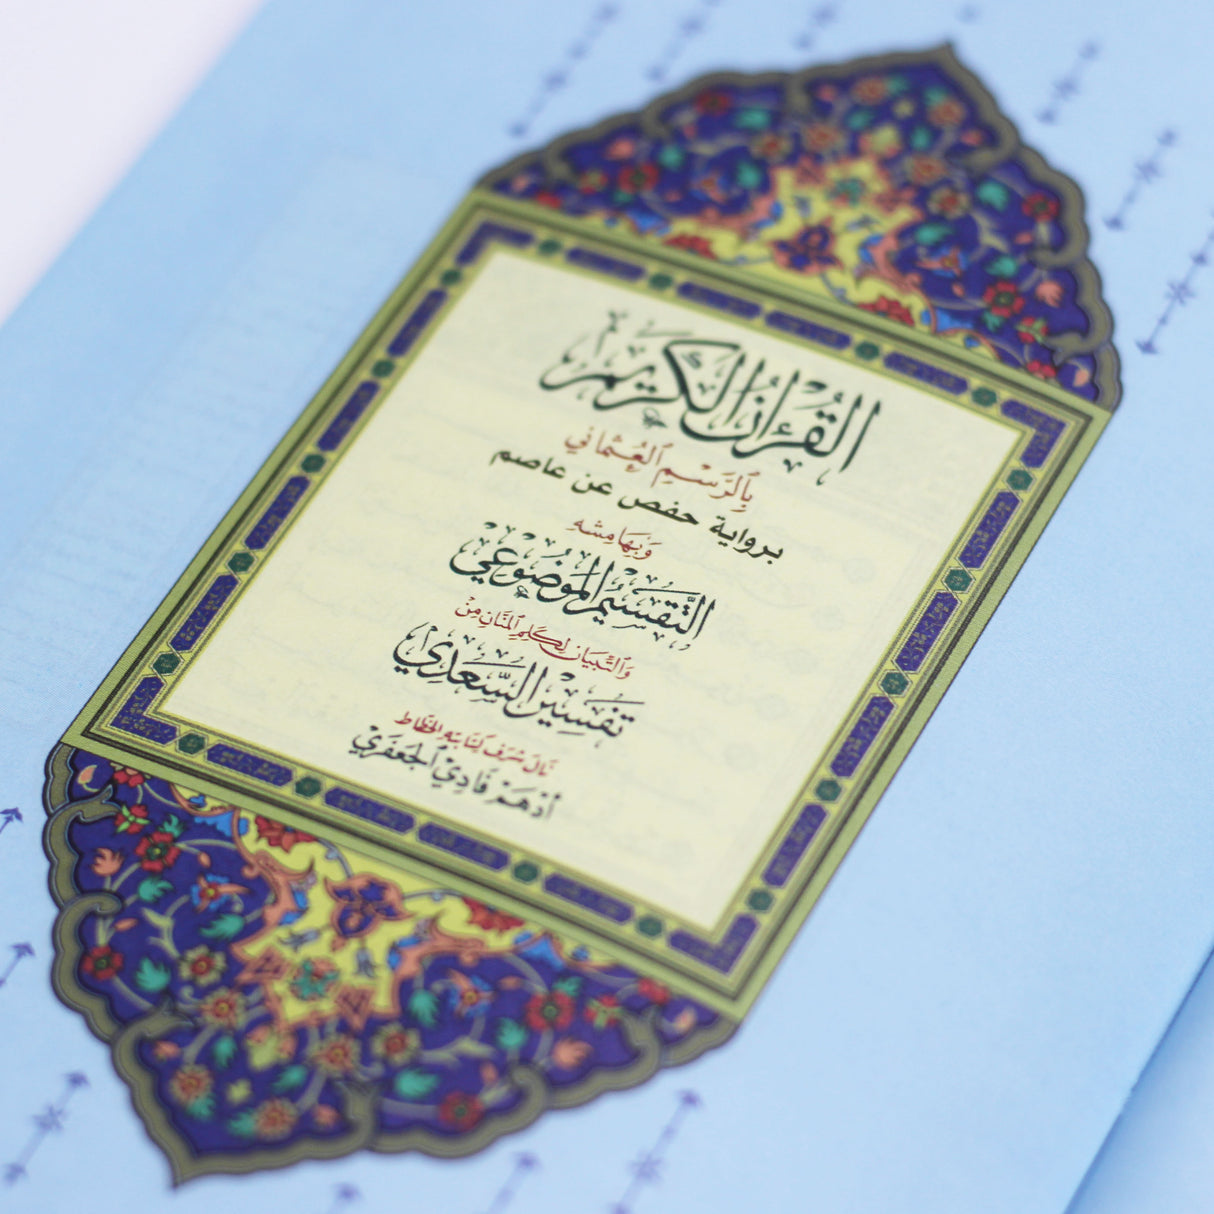 القرءان الكريم
بِالرَّسْمِ العُثْمَانِي
برواية حفص عن عاصم
وَبِهَامِشه
التَّقْسِيْمُ المَوْضُوْعِي
وَالتِّبيَان لِكَلِمِ المَنَّانِ مِنْ
تَفْسِيْرِ السَّعْدِي
نَالَ شَرَفَ كِتَابَتِهِ الخَطَّاط
أدْهَمْ فَادِي الجَعْفَرِيْ